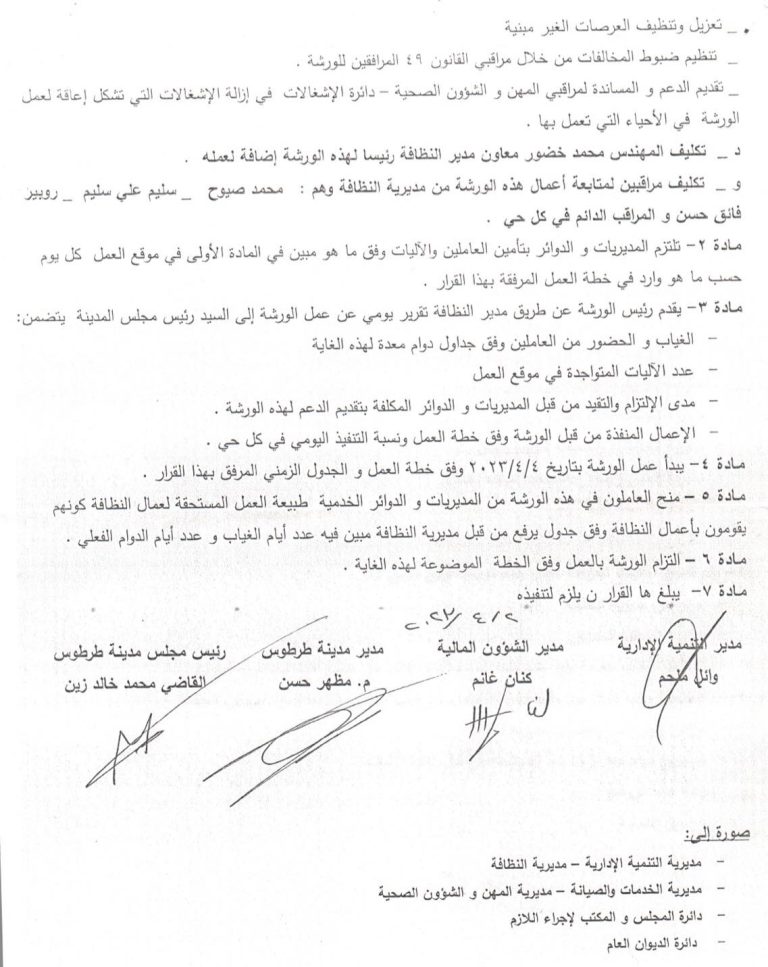 _ تعزيل وتنظيف العرصات الغير مبنية
_ تنظيم ضبوط المخالفات من خلال مراقبي القانون ٤٩ المرافقين للورشة .
_ تقديم الدعم و المساندة لمراقبي المهن و الشؤون الصحية – دائرة الإشغالات في إزالة الإشغالات التي تشكل إعاقة لعمل
الورشة في الأحياء التي تعمل بها .
د _ تكليف المهندس محمد خضور معاون مدير النظافة رئيسا لهذه الورشة إضافة لعمله .
و _ تكليف مراقبين لمتابعة أعمال هذه الورشة من مديرية النظافة وهم : محمد صيوح _ سليم علي سليم _ روبير
فائق حسن و المراقب الدائم في كل حي .
مادة ٢- تلتزم المديريات و الدوائر بتأمين العاملين والآليات وفق ما هو مبين في المادة الأولى في موقع العمل كل يوم
حسب ما هو وارد في خطة العمل المرفقة بهذا القرار .
مادة ٣- يقدم رئيس الورشة عن طريق مدير النظافة تقرير يومي عن عمل الورشة إلى السيد رئيس مجلس المدينة يتضمن:
- الغياب و الحضور من العاملين وفق جداول دوام معدة لهذه الغاية
- عدد الآليات المتواجدة في موقع العمل
- مدى الإلتزام والتقيد من قبل المديريات و الدوائر المكلفة بتقديم الدعم لهذه الورشة .
- الإعمال المنفذة من قبل الورشة وفق خطة العمل ونسبة التنفيذ اليومي في كل حي .
مادة ٤- يبدأ عمل الورشة بتاريخ ٢٠٢٣/٤/٤ وفق خطة العمل و الجدول الزمني المرفق بهذا القرار .
مادة ٥ - منح العاملون في هذه الورشة من المديريات و الدوائر الخدمية طبيعة العمل المستحقة لعمال النظافة كونهم
يقومون بأعمال النظافة وفق جدول يرفع من قبل مديرية النظافة مبين فيه عدد أيام الغياب و عدد أيام الدوام الفعلي .
مادة ٦ – التزام الورشة بالعمل وفق الخطة الموضوعة لهذه الغاية .
مادة ٧- يبلغ ها القرار ن يلزم لتنفيذه
٢٠٢٣/٤/٢
مدير التنمية الإدارية مدير الشؤون المالية مدير مدينة طرطوس رئيس مجلس مدينة طرطوس
وائل ملحم كنان غانم م. مظهر حسن القاضي محمد خالد زين
صورة إلى:
- مديرية التنمية الإدارية – مديرية النظافة
- مديرية الخدمات والصيانة – مديرية المهن و الشؤون الصحية
- دائرة المجلس و المكتب لإجراء اللازم
- دائرة الديوان العام